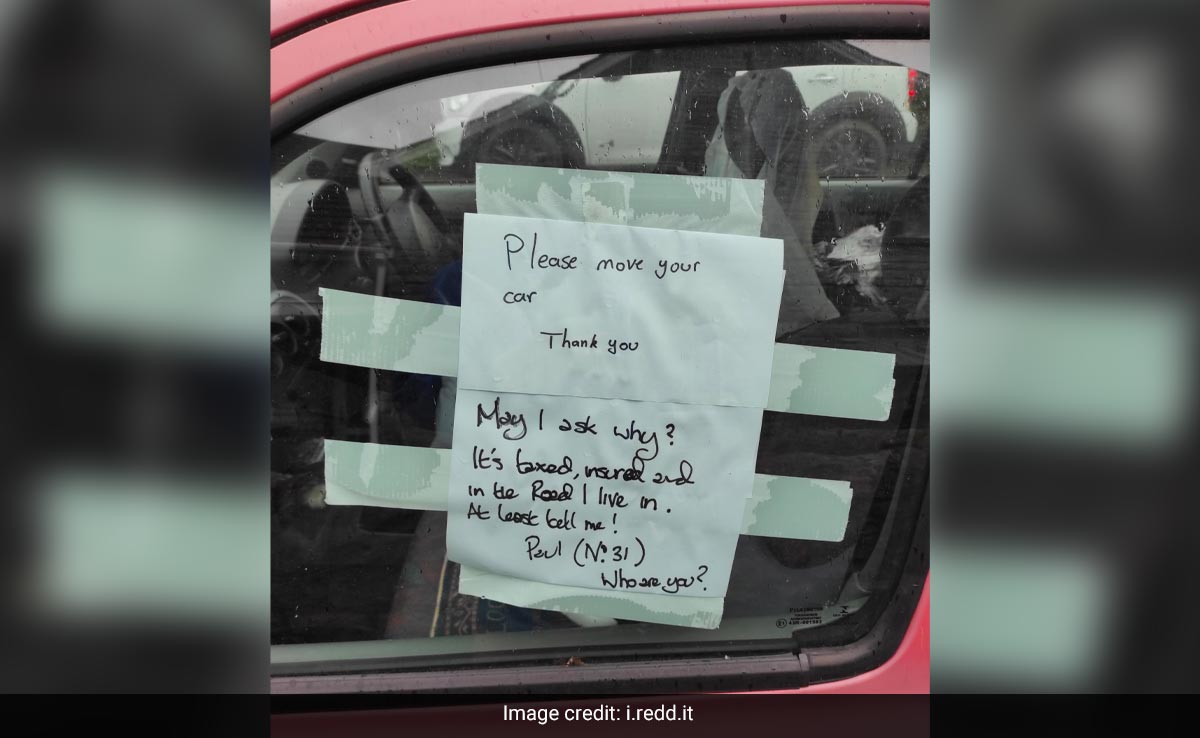 Please move your
car
Thank you
May I ask why?
It's taxed, insured and
in the Road I live in.
At least tell me!
Paul (Nº 31)
Who are you?
Image credit: i.redd.it